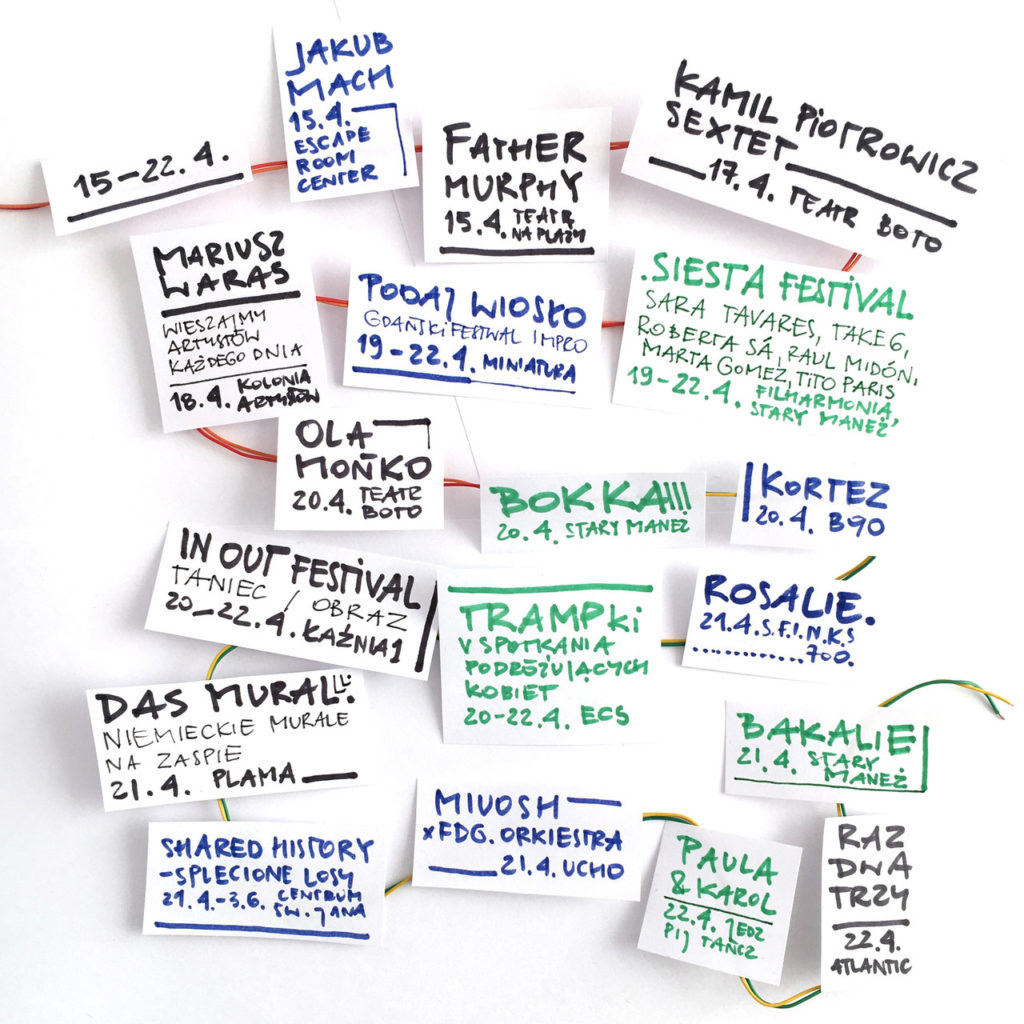 15–22.4.
JAKUB
MACH
15.4.
ESCAPE
ROOM
CENTER
FATHER
MURPHY
15.4. TEATR
NA PLAŻY
KAMIL PIOTROWICZ
SEXTET
17.4. TEATR BOTO
MARIUSZ
WARAS
WIESZAJMY
ARTYSTÓW
KAŻDEGO DNIA
18.4. KOLONIA
ARTYSTÓW
PODAJ WIOSŁO
GDAŃSKI FESTIWAL IMPRO
19–22.4. MINIATURA
.SIESTA FESTIVAL
SARA TAVARES, TAKE 6,
ROBERTA SÁ, RAUL MIDÓN,
MARTA GOMEZ, TITO PARIS
19–22.4. FILHARMONIA,
STARY MANEŻ
OLA
MOŃKO
20.4. TEATR
BOTO
BOKKA!!!
20.4. STARY MANEŻ
KORTEZ
20.4. B90
IN OUT FESTIVAL
TANIEC / OBRAZ
20–22.4. ŁAŹNIA 1
TRAMPKi
V SPOTKANIA
PODRÓŻUJĄCYCH
KOBIET
20-22.4. ECS
ROSALIE.
21.4. S.F.I.N.K.S
............700.
DAS MURAL!.
NIEMIECKIE MURALE
NA ZASPIE
21.4. PLAMA
BAKALIE
21.4. STARY
MANEŻ
SHARED HISTORY
-SPLECIONE LOSY
21.4.-3.6. CENTRUM
ŚW. JANA
MIUOSH
x FDG. ORKIESTRA
21.4. UCHO
PAULA
& KAROL
22.4. JEDZ
PIJ TAŃCZ
RAZ
DWA
TRZY
22.4.
ATLANTIC